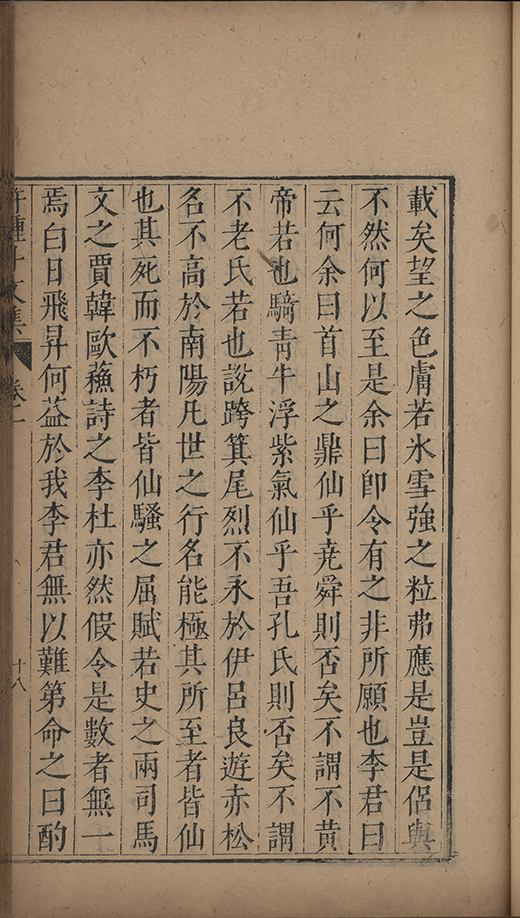 載矣望之色膚若氷雪強之粒弗應是豈是侶與
不然何以至是余曰卽令有之非所願也李君曰
云何余曰首山之鼎仙乎尭舜則否矣不謂不黃
帝若也騎青牛浮紫氣仙乎吾孔氏則否矣不謂
不老氏若也說跨箕尾烈不永於伊呂良遊赤松
名不高於南陽凡世之行名能極其所至者皆仙
也其死而不朽者皆仙騷之屈賦若史之兩司馬
文之賈韓歐蘓詩之李杜亦然假令是數者無一
焉白日飛昇何益於我李君無以難第命之曰酌
文集 卷二 十八